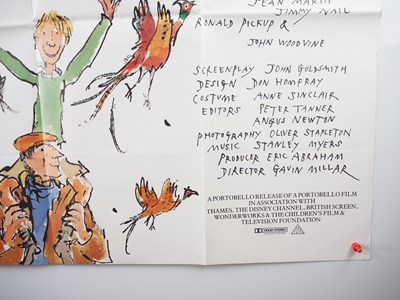 JEAN MARSH
JIMMY NAIL
RONALD PICKUP &
JOHN WOODVINE
SCREENPLAY JOHN GOLDSMITH
DESIGN DON HOMFRAY
COSTUME ANNE SINCLAIR
EDITORS PETER TANNER
ANGUS NEWTON
PHOTOGRAPHY OLIVER STAPLETON
MUSIC STANLEY MYERS
PRODUCER ERIC ABRAHAM
DIRECTOR GAVIN MILLAR
A PORTOBELLO RELEASE OF A PORTOBELLO FILM
IN ASSOCIATION WITH
THAMES, THE DISNEY CHANNEL, BRITISH SCREEN,
WONDERWORKS & THE CHILDREN'S FILM &
TELEVISION FOUNDATION
DOLBY STEREO